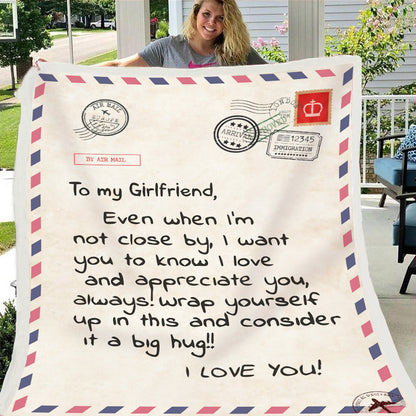 AIR MAIL
LONDON
ARRIVED
12345
IMMIGRATION
BY AIR MAIL
To my Girlfriend,
Even when I'm
not close by, I want
you to know I love
and appreciate you,
always! wrap yourself
up in this and consider
it a big hug!!
I LOVE YOU!